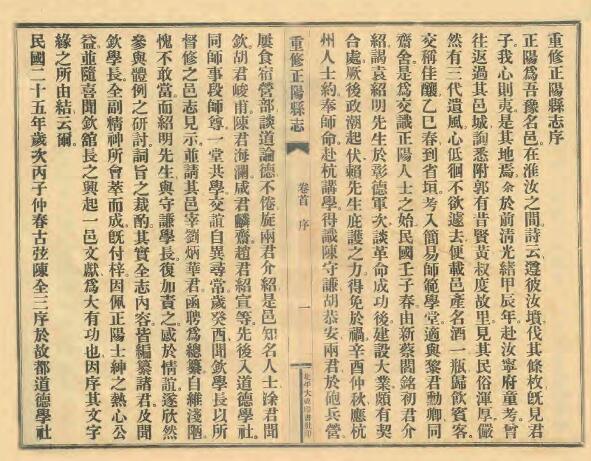 重修正陽縣志序
正陽爲吾豫名邑。在淮汝之間。詩云。遵彼汝墳。伐其條枚。旣見君
子。我心則夷。是其地焉。余於前淸光緖甲辰年。赴汝寧府童考。曾
往返過其邑城。詢悉附郭有昔賢黃叔度故里。見其民俗渾厚。儼
然有三代遺風。心低徊不欲遽去。便載邑產名酒一瓶。歸飮賓客。
交稱佳釀。乙巳春到省垣。考入簡易師範學堂。適與黎君勳卿同
齋舍。是爲交識正陽人士之始。民國壬子春。由新蔡閻銘初君介
紹。謁袁紹明先生於彰德軍次。談革命成功後。建設大業。頗有契
合處。厥後政潮起伏。賴先生庇護之力。得免於禍。辛酉仲秋。應杭
州人士約。奉師命赴杭講學。得識陳守謙胡恭安兩君於砲兵營。
重修正陽縣志
卷首 序
一
北平大成印書社印
屢食宿營部。談道論德不倦。旋兩君介紹是邑知名人士涂君聞
欽。胡君峻甫。陳君海瀾。戚君麟齋。趙君紹宣等。先後入道德學社。
同師事段師尊。一堂共學。交誼自異尋常。歲癸酉。聞欽學長以所
督修之邑志見示。並請其邑宰劉炳華君函聘爲總纂。自維淺陋。
愧不敢當。而紹明先生。與守謙學長。復加責之。感於情誼。遂欣然
參與體例之硏討。詞旨之裁酌。其實全志內容。皆編纂諸君及聞
欽學長全副精神所會萃而成。旣付梓。因佩正陽士紳之熱心公
益。並隨喜聞欽舘長之興起一邑文獻。爲大有功也。因序其文字
緣之所由結云爾。
民國二十五年歲次丙子仲春古弦陳全三序於故都道德學社